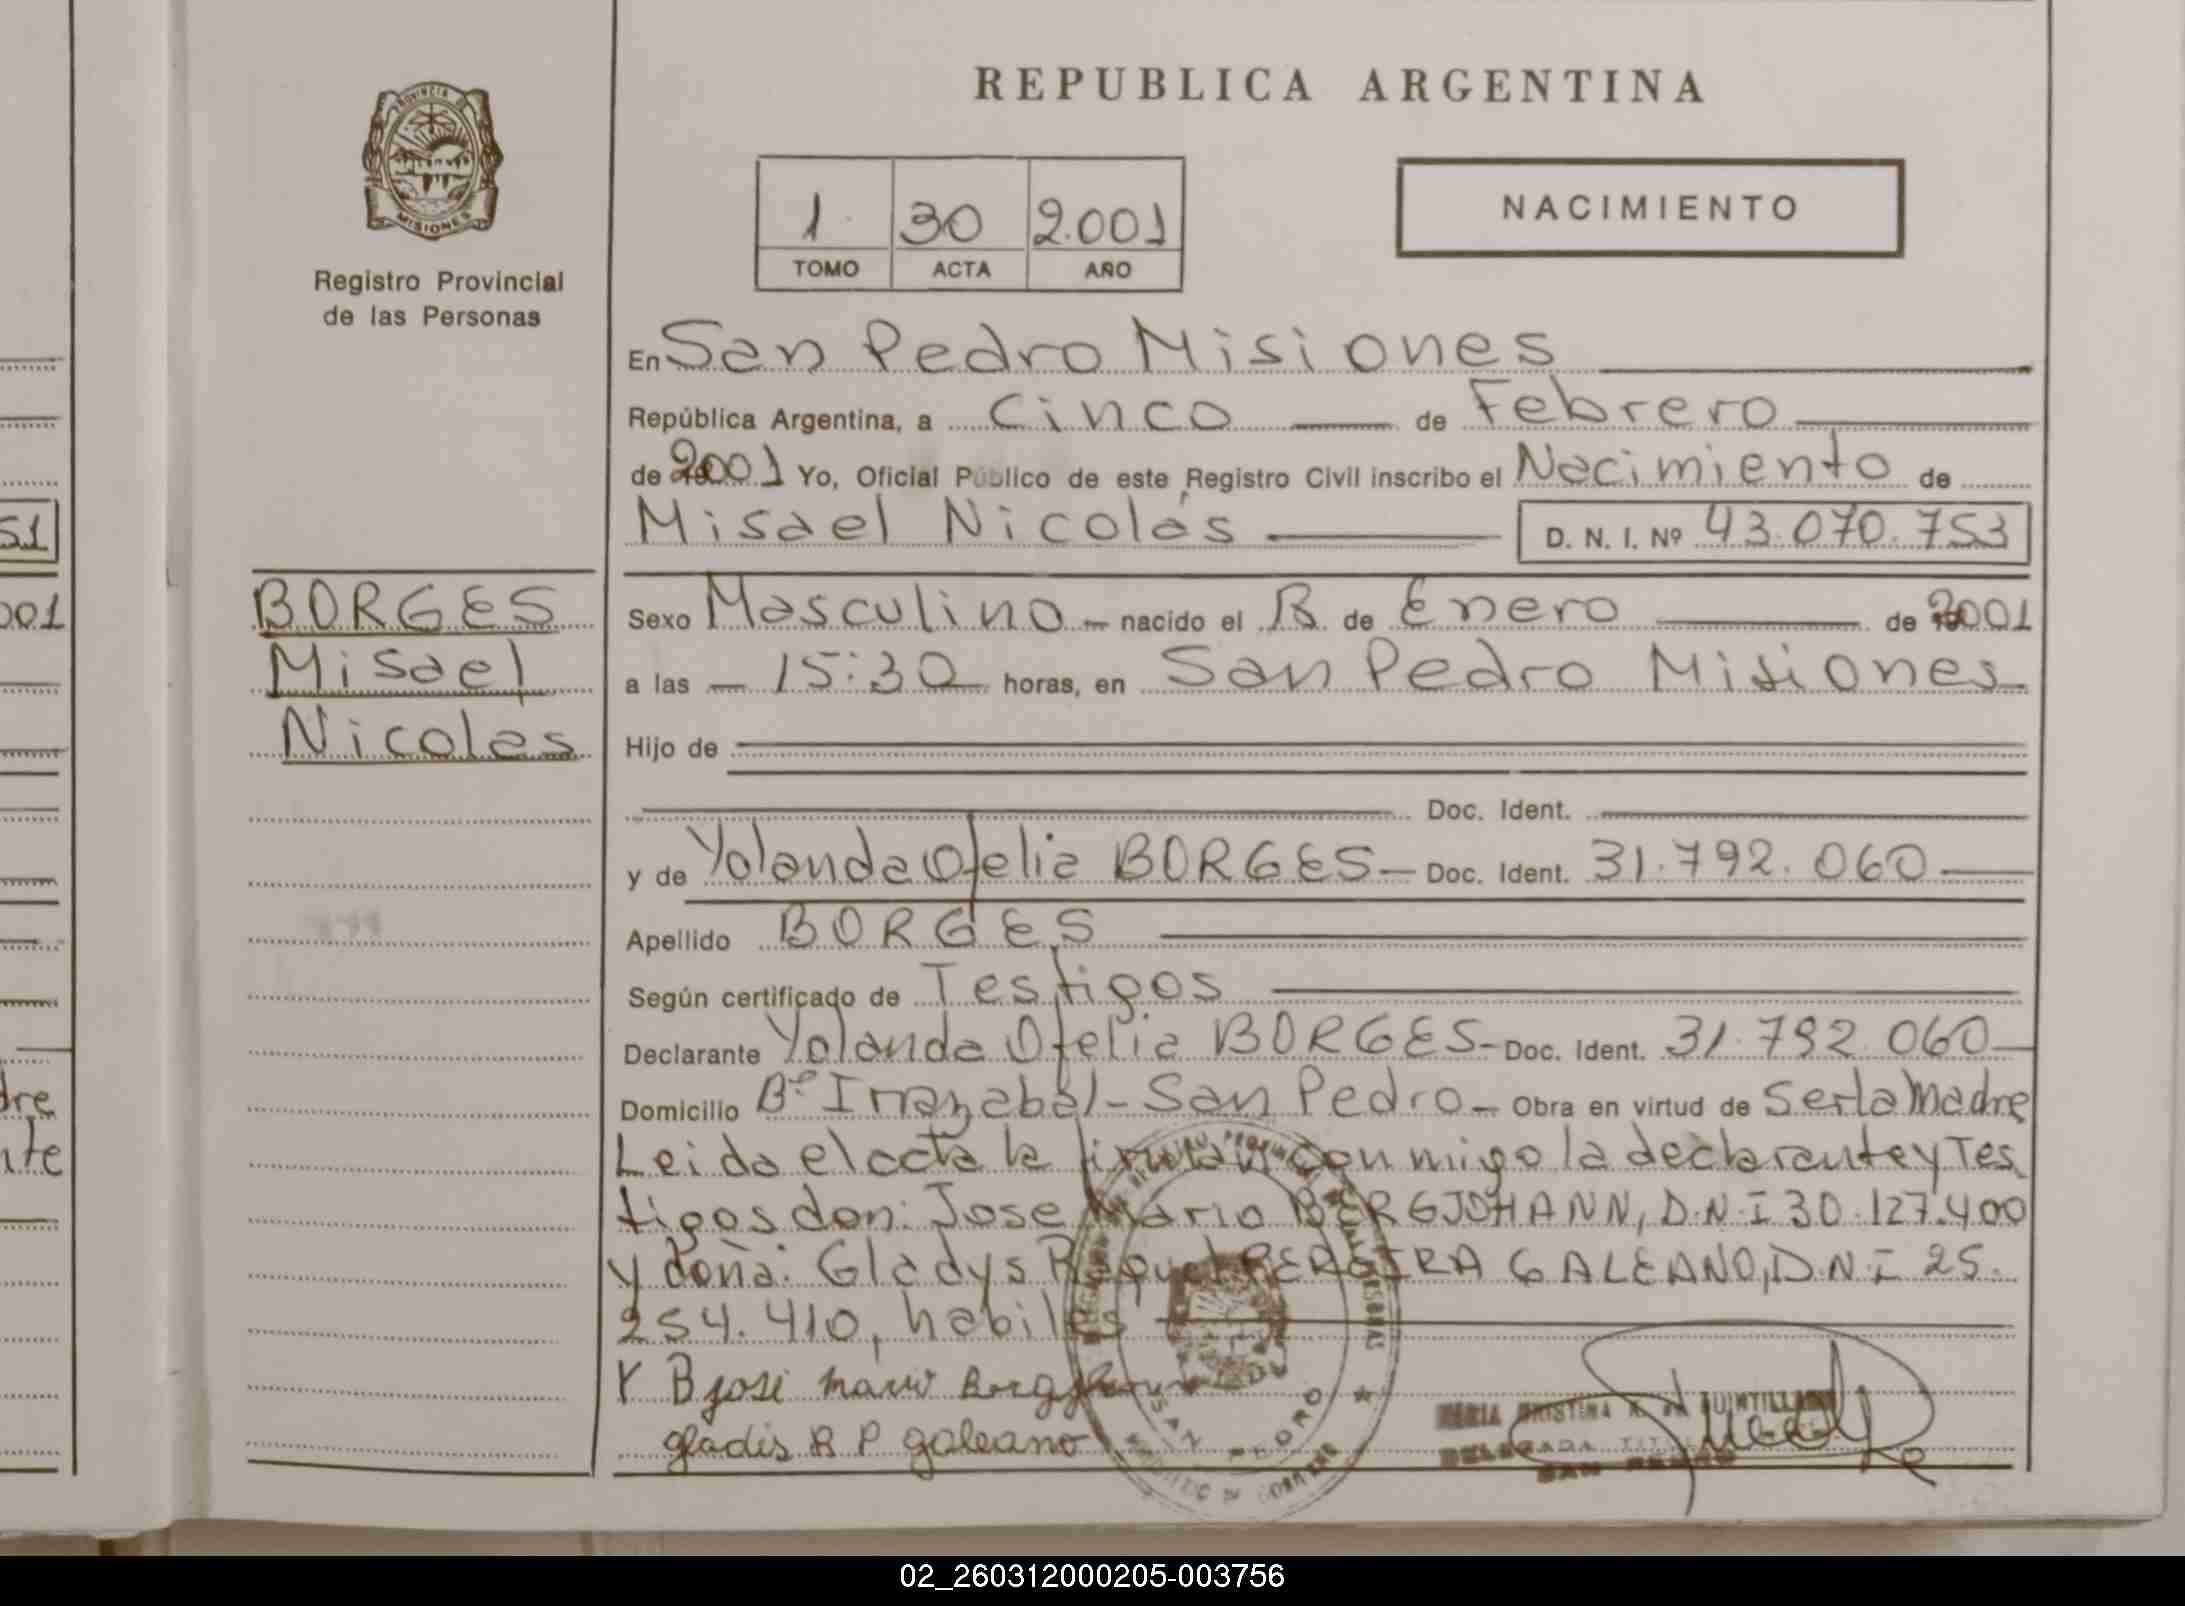 REPUBLICA ARGENTINA
PROVINCIA DE
MISIONES
Registro Provincial
de las Personas
1 30 2.001
TOMO ACTA AÑO
NACIMIENTO
En San Pedro Misiones
República Argentina, a Cinco de Febrero
de 2001 Yo, Oficial Público de este Registro Civil inscribo el Nacimiento de
Misael Nicolás
D. N. I. Nº 43.070.753
51
001
dre
nte
BORGES
Misael
Nicolás
Sexo Masculino nacido el de Enero de 2001
a las 15:30 horas, en San Pedro Misiones
Hijo de
Doc. Ident.
y de Yolanda Ofelia BORGES - Doc. Ident. 31.792.060
Apellido BORGES
Según certificado de Testigos
Declarante Yolanda Ofelia BORGES - Doc. Ident. 31.792.060
Domicilio Bº Irrazabal - San Pedro - Obra en virtud de Ser la Madre
Leida el acta la firman conmigo la declarante y Tes
tigos don: Jose Mario BERGJOHANN, D.N.I 30.127.400
y doña: Gladys Raquel PEREIRA GALEANO, D.N.I 25.
254.410, habiles
Y B jose mario
gladis R P galeano
SAN PEDRO
02_260312000205-003756